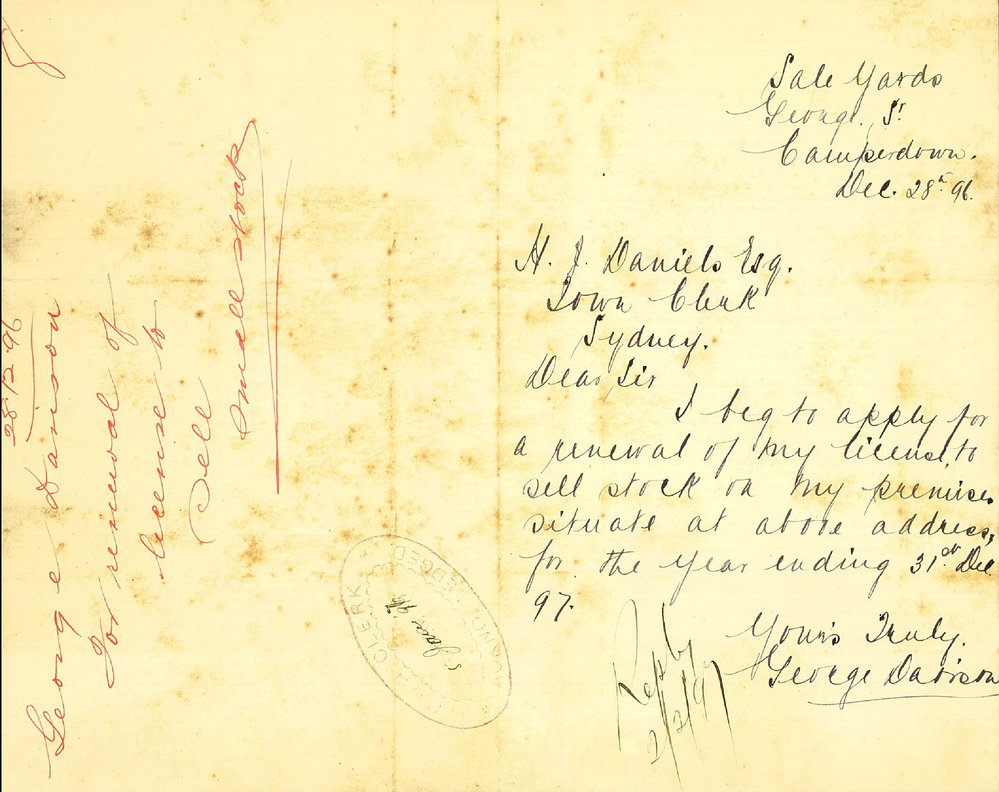 Sale Yards
George St
Camperdown.
Dec. 28th 96.
H. J. Daniels Esq.
Town Clerk
Sydney.
Dear Sir
I beg to apply for
a renewal of my license, to
sell stock on my premises
situate at above address,
for the year ending 31st Dec.
97.
Yours Truly.
George Davison
Reply
2/2/97
TOWN CLERK
ACKNOWLEDGED
5 Jan 97
28/12/96
George Davison
For renewal of
license to
Sell
small stock